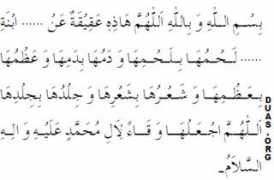 بِسْمِ اللّٰهِ وَ بِاللّٰهِ اَللّٰهُمَّ هَاذِهٖ عَقِيْقَةٌ عَنْ ...... ابْنَةِ
...... لَحْمُهَا بِلَحْمِهَا وَ دَمُهَا بِدَمِهَا وَ عَظْمُهَا
بِعَظْمِهَا وَ شَعْرُهَا بِشَعْرِهَا وَ جِلْدُهَا بِجِلْدِهَا
اَللّٰهُمَّ اجْعَلْهَا وِ قَاءً لِاٰلِ مُحَمَّدٍ عَلَيْهِ وَ اٰلِهِ
السَّلَامُ۔
DUAS.ORG